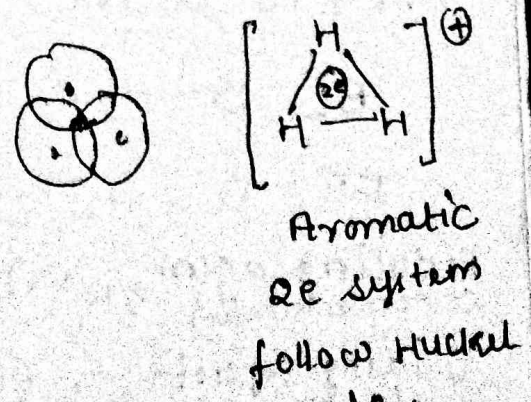 H
⊕
2e
H H
Aromatic
2e system
follow Huckel